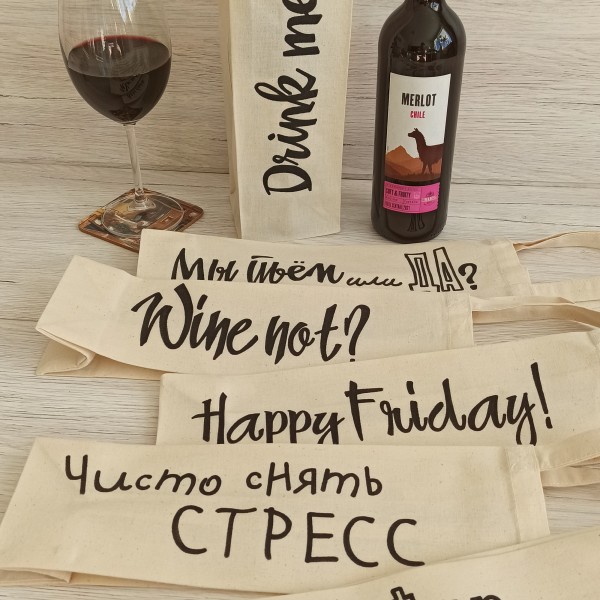 Drink me
MERLOT
CHILE
SOFT & FRUITY
Мы пьём или ДА?
Wine not?
Happy Friday!
Чисто снять
СТРЕСС